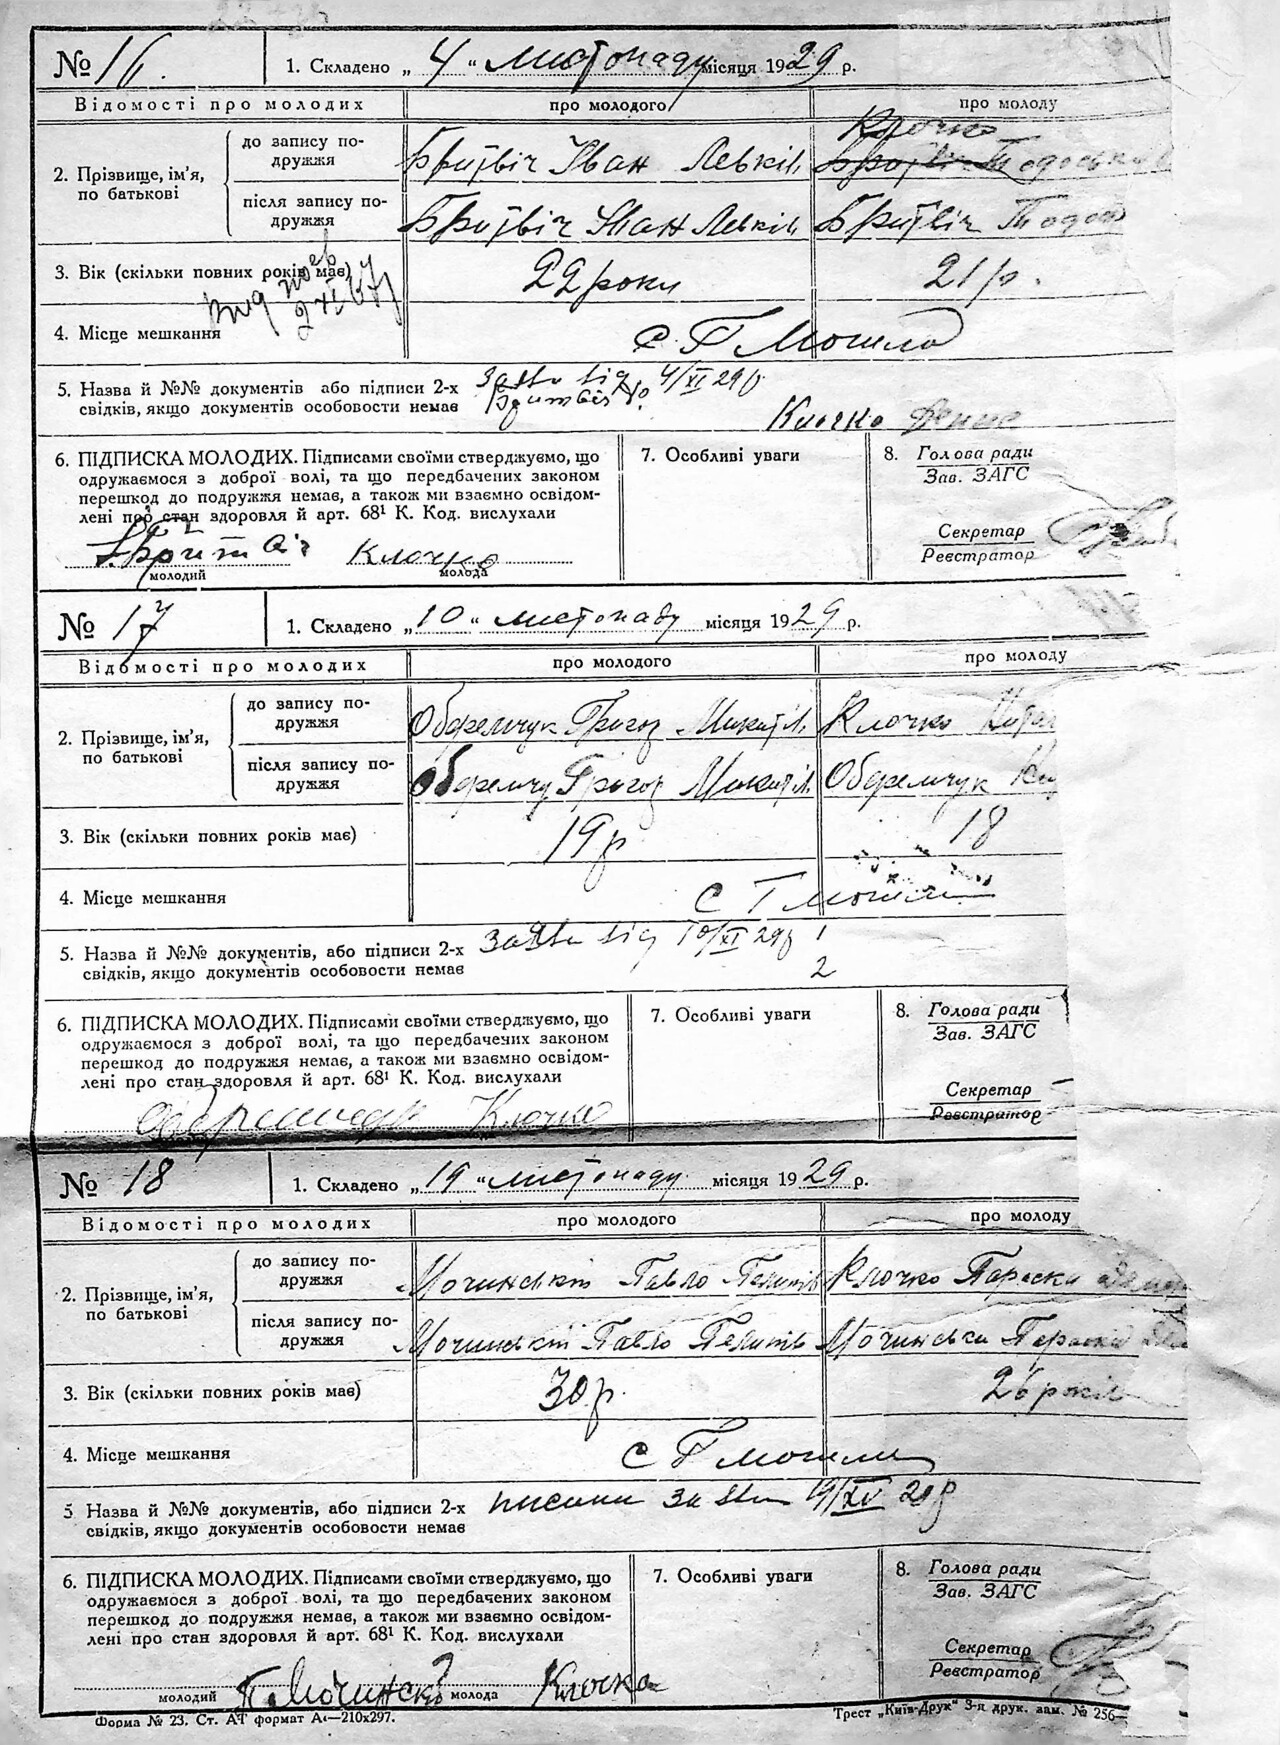 № 16. 1. Складено „4“ листопаду місяця 1929 р.
Відомості про молодих про молодого про молоду
Клочко
2. Прізвище, ім’я, по батькові до запису по-
дружжя Бритвіч Іван Левків
після запису по-
дружжя Бритвіч Іван Левків Бритвіч
3. Вік (скільки повних років має) 22 роки 21 р.
4. Місце мешкання с. Г Могила
5. Назва й №№ документів або підписи 2-х заява від 4/XI 29 р.
свідків, якщо документів особовости немає
Клочко
6. ПІДПИСКА МОЛОДИХ. Підписами своїми стверджуємо, що
одружаємося з доброї волі, та що передбачених законом
перешкод до подружжя немає, а також ми взаємно освідом-
лені про стан здоровля й арт. 68¹ К. Код. вислухали
Клочко
молодий молода
7. Особливі уваги
8. Голова ради
Зав. ЗАГС
Секретар
Реєстратор
№ 17 1. Складено „10“ листопаду місяця 1929 р.
Відомості про молодих про молодого про молоду
2. Прізвище, ім’я, по батькові до запису по-
дружжя Оберемчук Григор Микит Клочко
після запису по-
дружжя Оберемчу Григор Микит Оберемчук
3. Вік (скільки повних років має) 19 р 18
4. Місце мешкання с Г Могила
5. Назва й №№ документів, або підписи 2-х заява від 10/XI 29 р 1
свідків, якщо документів особовости немає 2
6. ПІДПИСКА МОЛОДИХ. Підписами своїми стверджуємо, що
одружаємося з доброї волі, та що передбачених законом
перешкод до подружжя немає, а також ми взаємно освідом-
лені про стан здоровля й арт. 68¹ К. Код. вислухали
Клочко
7. Особливі уваги
8. Голова ради
Зав. ЗАГС
Секретар
Реєстратор
№ 18 1. Складено „19“ листопаду місяця 1929 р.
Відомості про молодих про молодого про молоду
2. Прізвище, ім’я, по батькові до запису по-
дружжя Мочинські Павло Клочко Параска
після запису по-
дружжя Мочинські Павло Мочинська Параска
3. Вік (скільки повних років має) 30 р. 26 років
4. Місце мешкання с Г Могили
5 Назва й №№ документів, або підписи 2-х заява 29 р
свідків, якщо документів особовости немає
6. ПІДПИСКА МОЛОДИХ. Підписами своїми стверджуємо, що
одружаємося з доброї волі, та що передбачених законом
перешкод до подружжя немає, а також ми взаємно освідом-
лені про стан здоровля й арт. 68¹ К. Код. вислухали
молодий П Мочинскі молода Клочка
7. Особливі уваги
8. Голова ради
Зав. ЗАГС
Секретар
Реєстратор
Форма № 23. Ст. АТ формат А₄—210х297. Трест „Київ-Друк“ 3-я друк. зам. № 256—